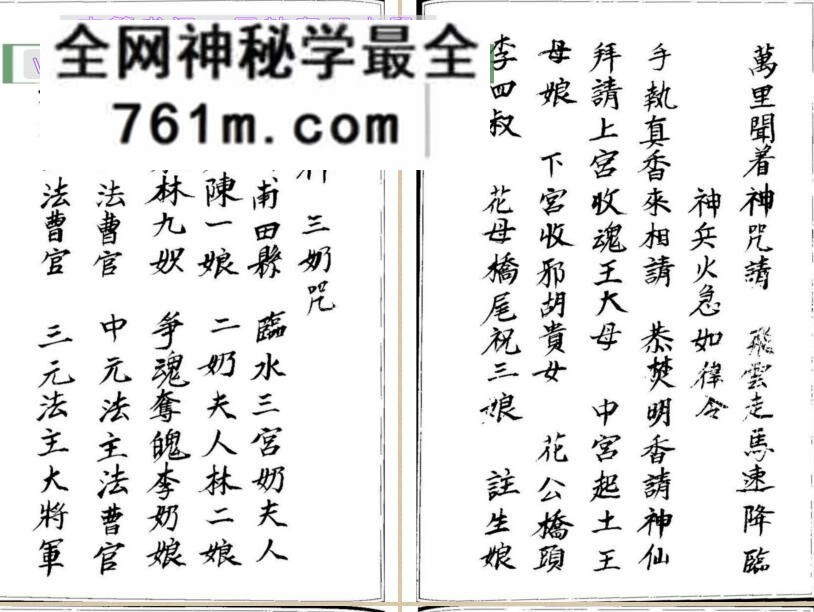 全网神秘学最全
761m.com
萬里聞着神咒請 飛雲走馬速降臨
神兵火急如律令
手執真香來相請 恭焚明香請神仙
拜請上宮收魂王大母 中宮起土王
母娘 下宮收邪胡貴女 花公橋頭
李四叔 花母橋尾祝三娘 註生娘
三奶咒
甫田縣 臨水三宮奶夫人
陳一娘 二奶夫人林二娘
林九奴 爭魂奪魄李奶娘
法曹官 中元法主法曹官
法曹官 三元法主大將軍